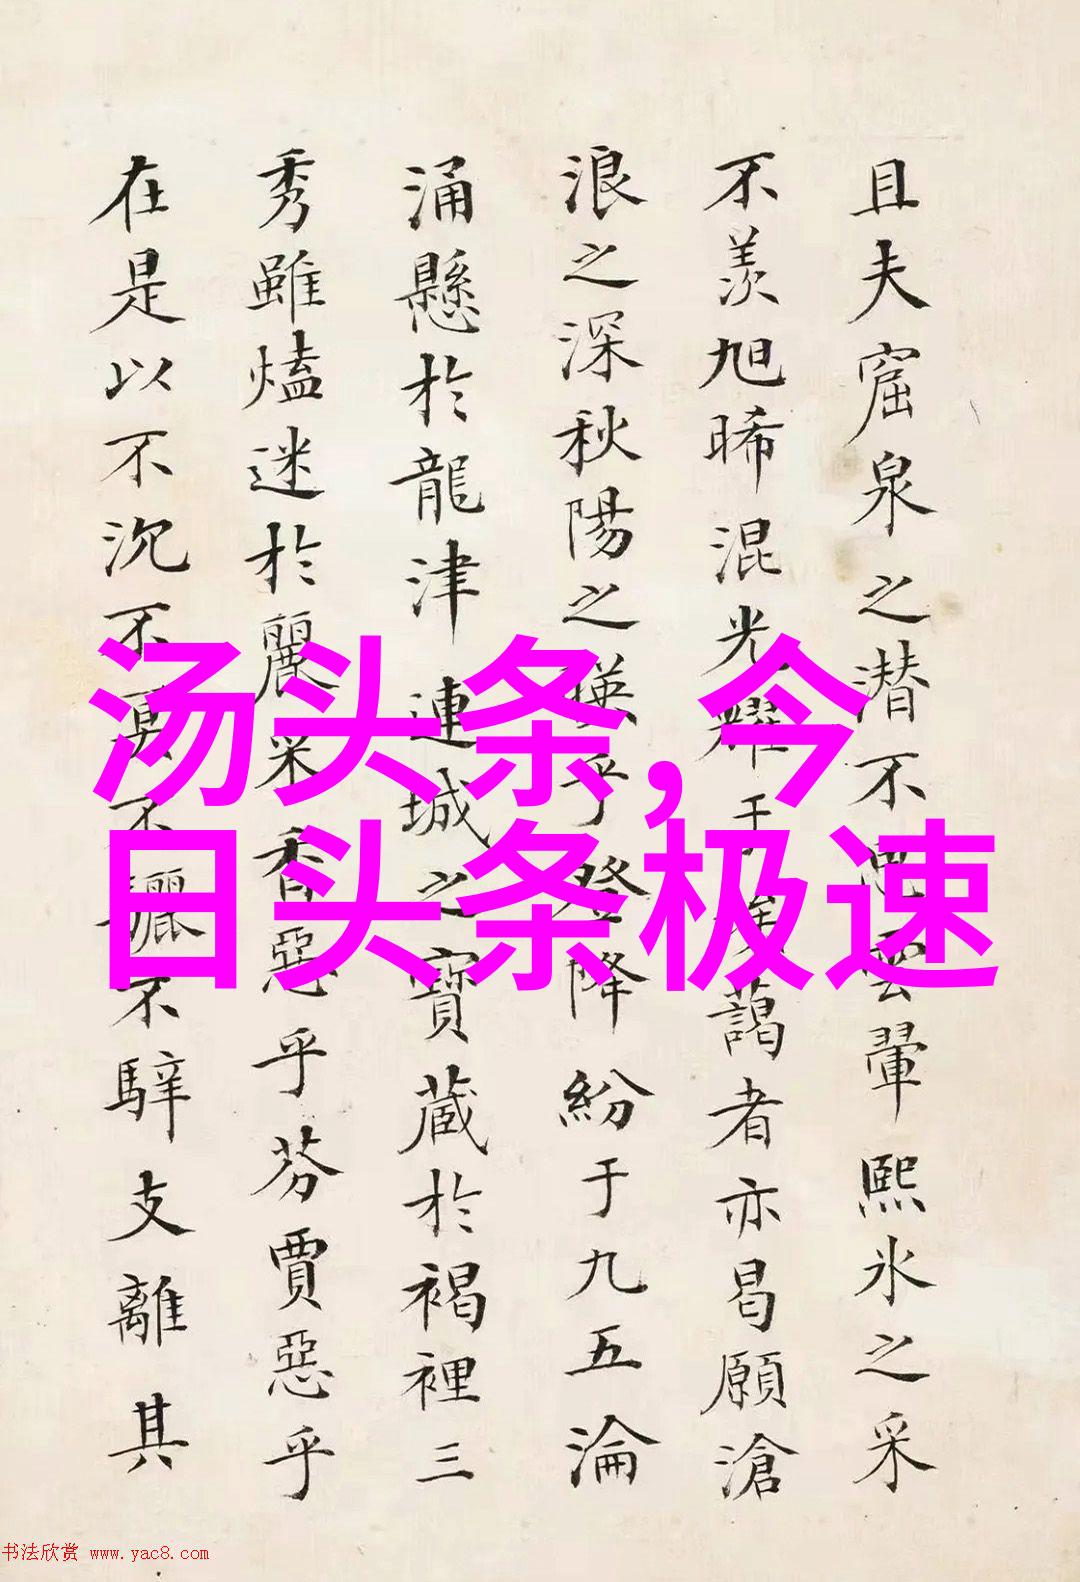 且夫窟泉之潜不雲翬熙氷之采
不羨旭晞混光耀于藹者亦曷願滄
浪之深秋陽之暎乎登降紛于九五淪
涌懸於龍津連城之寶藏於褐裡三
秀雖熆迷於麗采香惡乎芬賈惡乎
在是以不沉不不驪不騂支離其
汤头条,今
日头条极速
书法欣赏 www.yac8.com